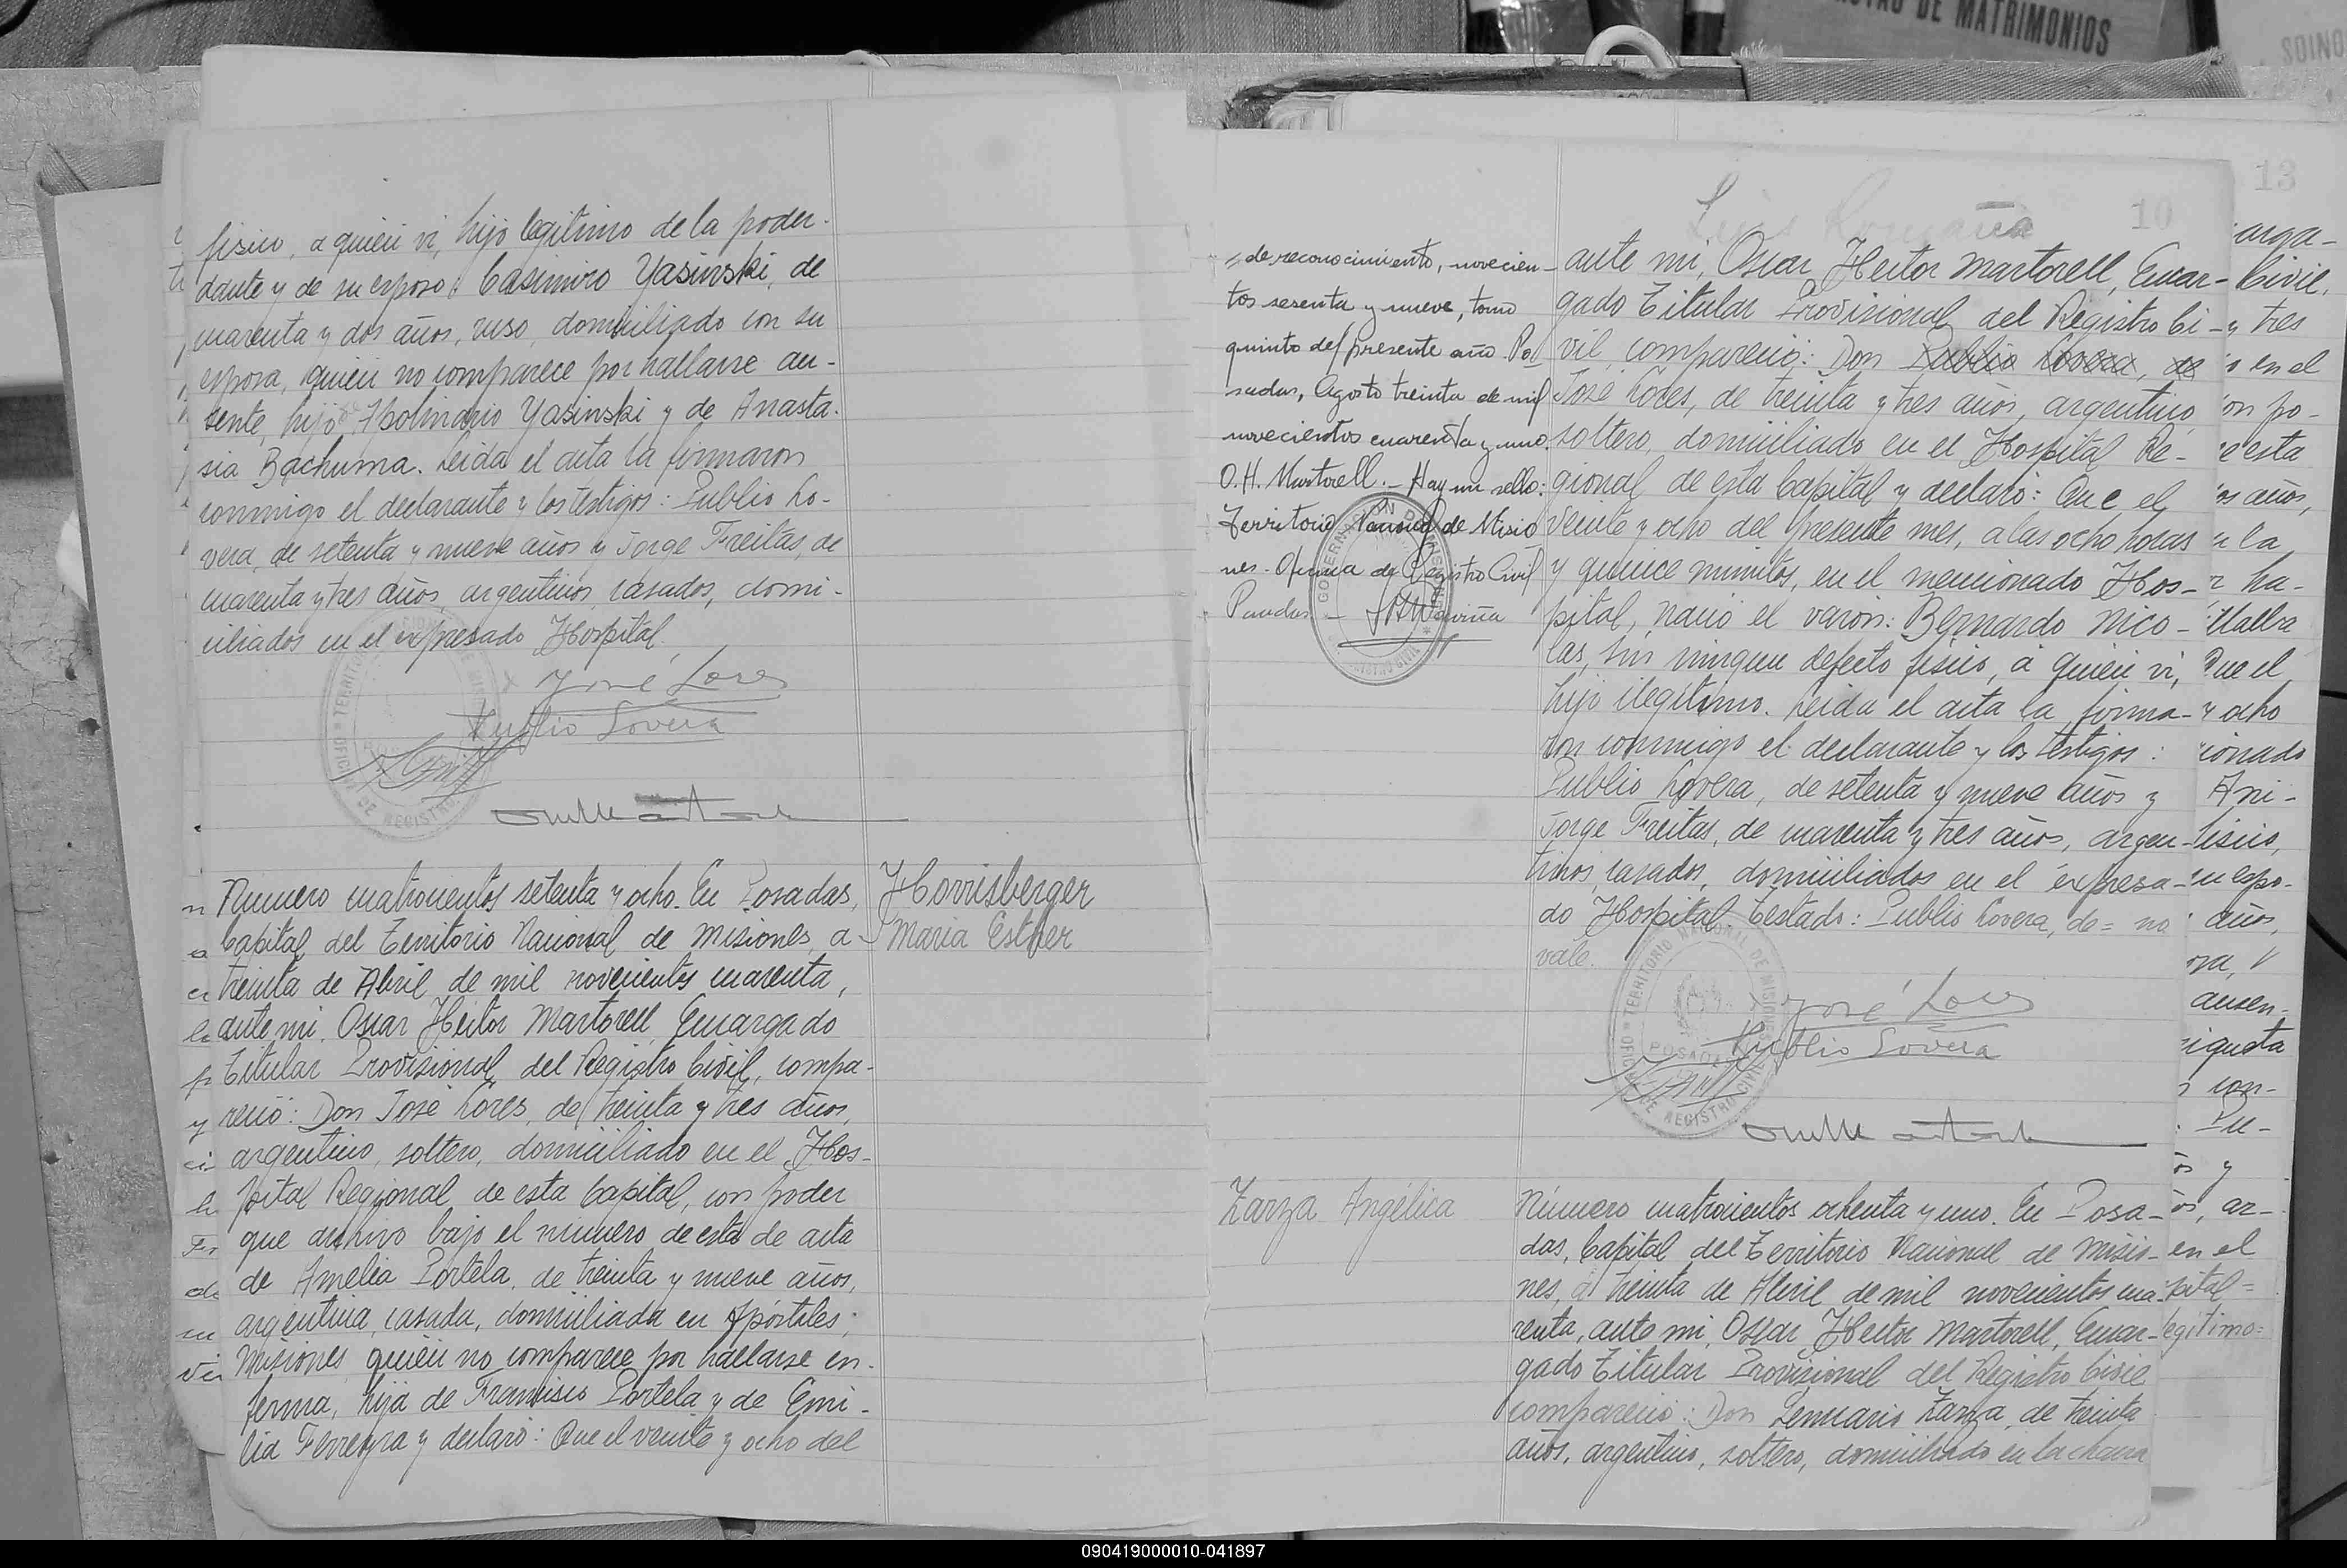 fisico, a quien vi, hijo legitimo de la poder-
dante y de su esposo: Casimiro Yasinski, de
cuarenta y dos años, ruso, domiciliado con su
esposa, quien no comparece por hallarse au-
sente, hijo de Apolinario Yasinski y de Anasta-
sia Bachuma. Leida el acta la firmaron
conmigo el declarante y los testigos: Publio Lo-
vera, de setenta y nueve años y Jorge Freitas, de
cuarenta y tres años, argentinos, casados, domi-
ciliados en el expresado Hospital.
José Lores
Publio Lovera
Numero cuatrocientos setenta y ocho. En Posadas,
Capital del Territorio Nacional de Misiones, a
treinta de Abril de mil novecientos cuarenta,
ante mi, Oscar Hector Martorell, Encargado
Titular Provisional del Registro Civil, compa-
reció: Don José Lores, de treinta y tres años,
argentino, soltero, domiciliado en el Hos-
pital Regional de esta Capital, con poder
que archivo bajo el numero de esta de acta
de Amelia Portela, de treinta y nueve años,
argentina, casada, domiciliada en Apóstoles,
Misiones, quien no comparece por hallarse en-
ferma, hija de Francisco Portela y de Emi-
lia Ferreyra y declaró: Que el veinte y ocho del
Horrisberger
Maria Esther
10
de reconocimiento, novecien-
tos sesenta y nueve, tomo
quinto del presente año. Po
sadas, Agosto treinta de mil
novecientos cuarenta y uno.
O. H. Martorell.- Hay un sello:
Territorio Nacional de Misio
nes. Oficina de Registro Civil
Posadas.-
ante mi, Oscar Hector Martorell, Encar-
gado Titular Provisional del Registro Ci-
vil, compareció: Don Publio Lovera, de
José Lores, de treinta y tres años, argentino,
soltero, domiciliado en el Hospital Re-
gional de esta Capital y declaró: Que el
veinte y ocho del presente mes, a las ocho horas
y quince minutos, en el mencionado Hos-
pital, nació el varón: Bernardo Nico-
las, sin ningun defecto fisico, a quien vi,
hijo ilegitimo. Leida el acta la firma-
ron conmigo el declarante y los testigos:
Publio Lovera, de setenta y nueve años y
Jorge Freitas, de cuarenta y tres años, argen-
tinos, casados, domiciliados en el expresa-
do Hospital. Testado: Publio Lovera, de = no
vale.
José Lores
Publio Lovera
Zarza Angélica
Número cuatrocientos ochenta y uno. En Posa-
das, Capital del Territorio Nacional de Misio-
nes, a treinta de Abril de mil novecientos cua-
renta, ante mi, Oscar Hector Martorell, Encar-
gado Titular Provisional del Registro Civil
compareció: Don Jenuario Zarza, de treinta
años, argentino, soltero, domiciliado en la chacra
13
arga-
Civil,
y tres
en el
on po-
e esta
os años,
a la
ha-
Que el
y ocho
cionado
Ani-
fisico,
su espo-
años,
ausen-
con-
Pu-
os y
os, ar-
en el
pital=
legitimo=
DE MATRIMONIOS
090419000010-041897